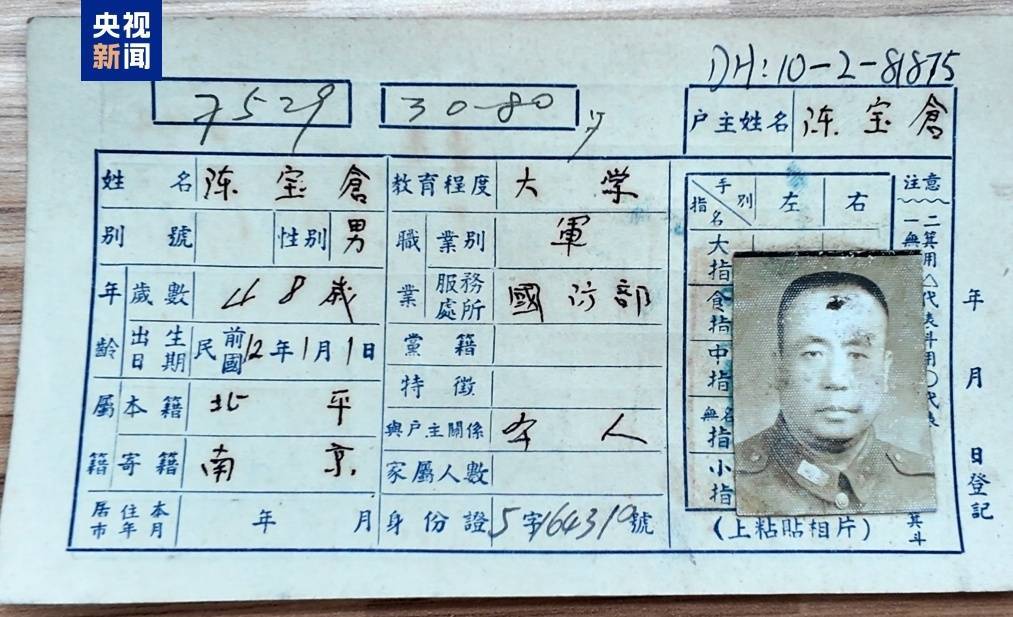 央视
新闻
DH:10-2-81875
7529
30-80
户主姓名 陈宝倉
姓名 陈宝倉 教育程度 大学
別號 性別 男 職業 業別 軍
年齡 歲數 48歲 服務處所 國防部
出生日期 民國前12年1月1日 黨籍
特徵
屬籍 本籍 北平 與户主關係 本人
寄籍 南京 家屬人數
居住本市年月 年 月 身份證 5字164319號
手別 指名 左 右
大指
食指
中指
無名指
小指
(上粘貼相片)
注意
一無
二箕用△代表斗用〇代表
箕斗
年月日登記